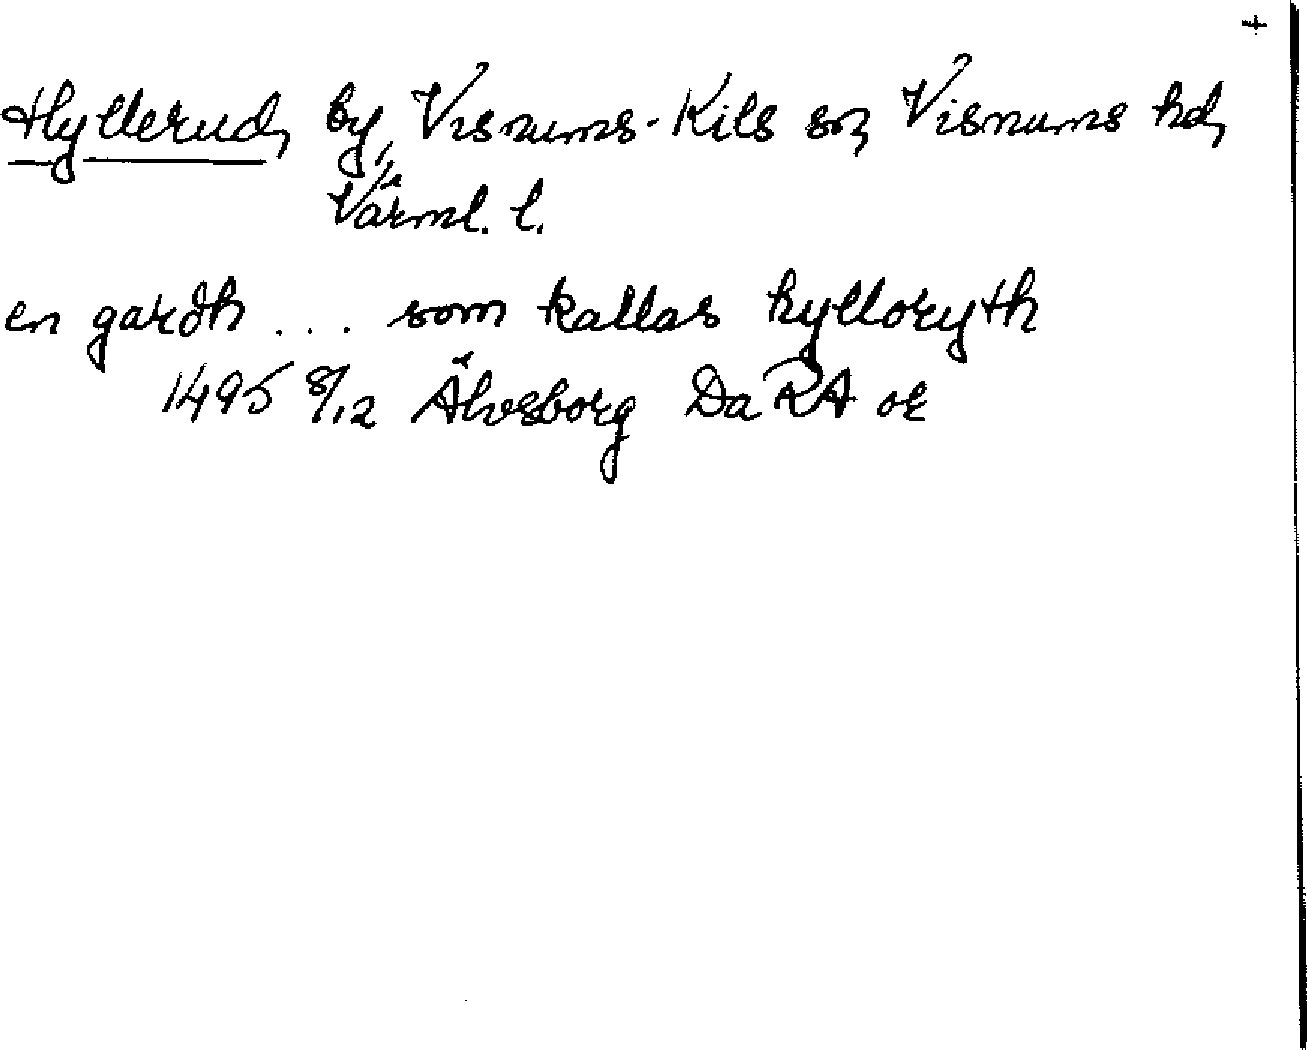 Hyllerud, by, Visnums-Kils sn, Visnums hd,
Värml. l.
en gardh ... som kallas hylloryth
1495 8/12 Älvsborg DaRA or